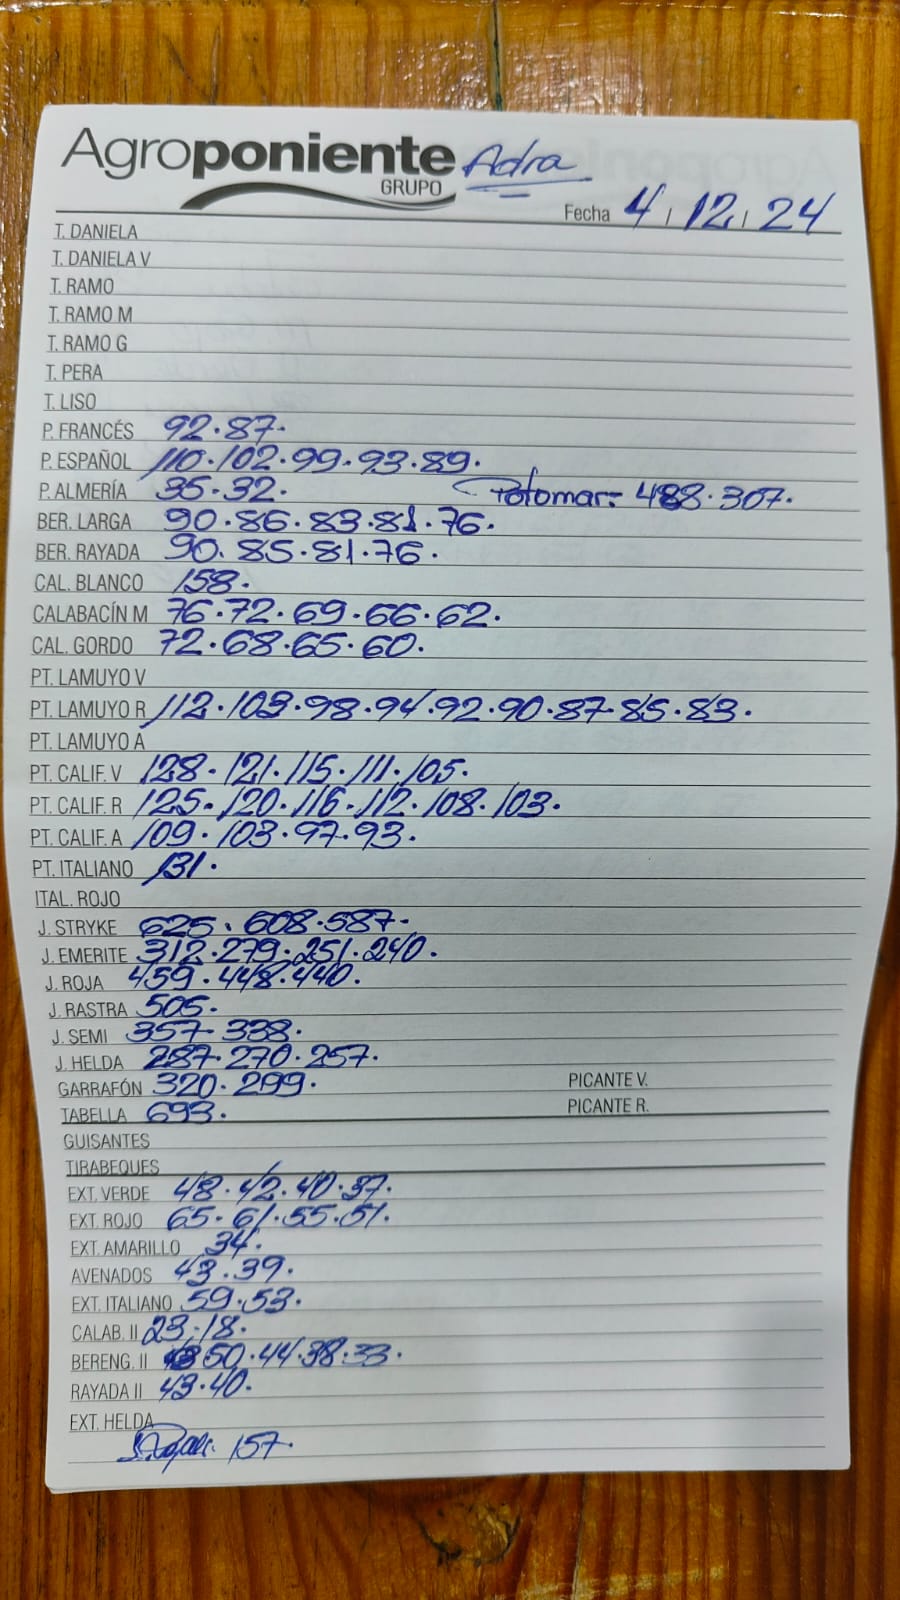 Agroponiente Adra
GRUPO
Fecha 4 / 12 / 24
T. DANIELA
T. DANIELA V
T. RAMO
T. RAMO M
T. RAMO G
T. PERA
T. LISO
P. FRANCÉS 92. 87.
P. ESPAÑOL 110. 102. 99. 93. 89.
P. ALMERÍA 35. 32. Potomar: 488. 307.
BER. LARGA 90. 86. 83. 81. 76.
BER. RAYADA 90. 85. 81. 76.
CAL. BLANCO 158.
CALABACÍN M 76. 72. 69. 66. 62.
CAL. GORDO 72. 68. 65. 60.
PT. LAMUYO V
PT. LAMUYO R 112. 103. 98. 94. 92. 90. 87. 85. 83.
PT. LAMUYO A
PT. CALIF. V 128. 121. 115. 111. 105.
PT. CALIF. R 125. 120. 116. 112. 108. 103.
PT. CALIF. A 109. 103. 97. 93.
PT. ITALIANO 131.
ITAL. ROJO
J. STRYKE 625. 608. 587.
J. EMERITE 312. 279. 251. 240.
J. ROJA 459. 448. 440.
J. RASTRA 505.
J. SEMI 357. 338.
J. HELDA 287. 270. 257.
GARRAFÓN 320. 299. PICANTE V.
TABELLA 693. PICANTE R.
GUISANTES
TIRABEQUES
EXT. VERDE 48. 42. 40. 37.
EXT. ROJO 65. 61. 55. 51.
EXT. AMARILLO 34.
AVENADOS 43. 39.
EXT. ITALIANO 59. 53.
CALAB. II 23. 18.
BERENG. II 50. 44. 38. 33.
RAYADA II 43. 40.
EXT. HELDA
157.